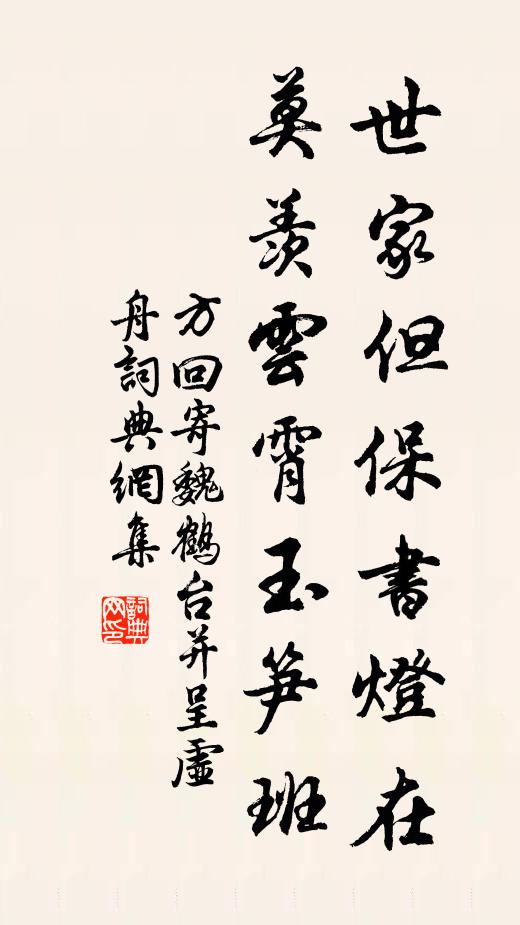 世家但保書燈在
莫羨雲霄玉笋班
方回寄魏鶴台并呈虛
舟詞典網集
詞典网印